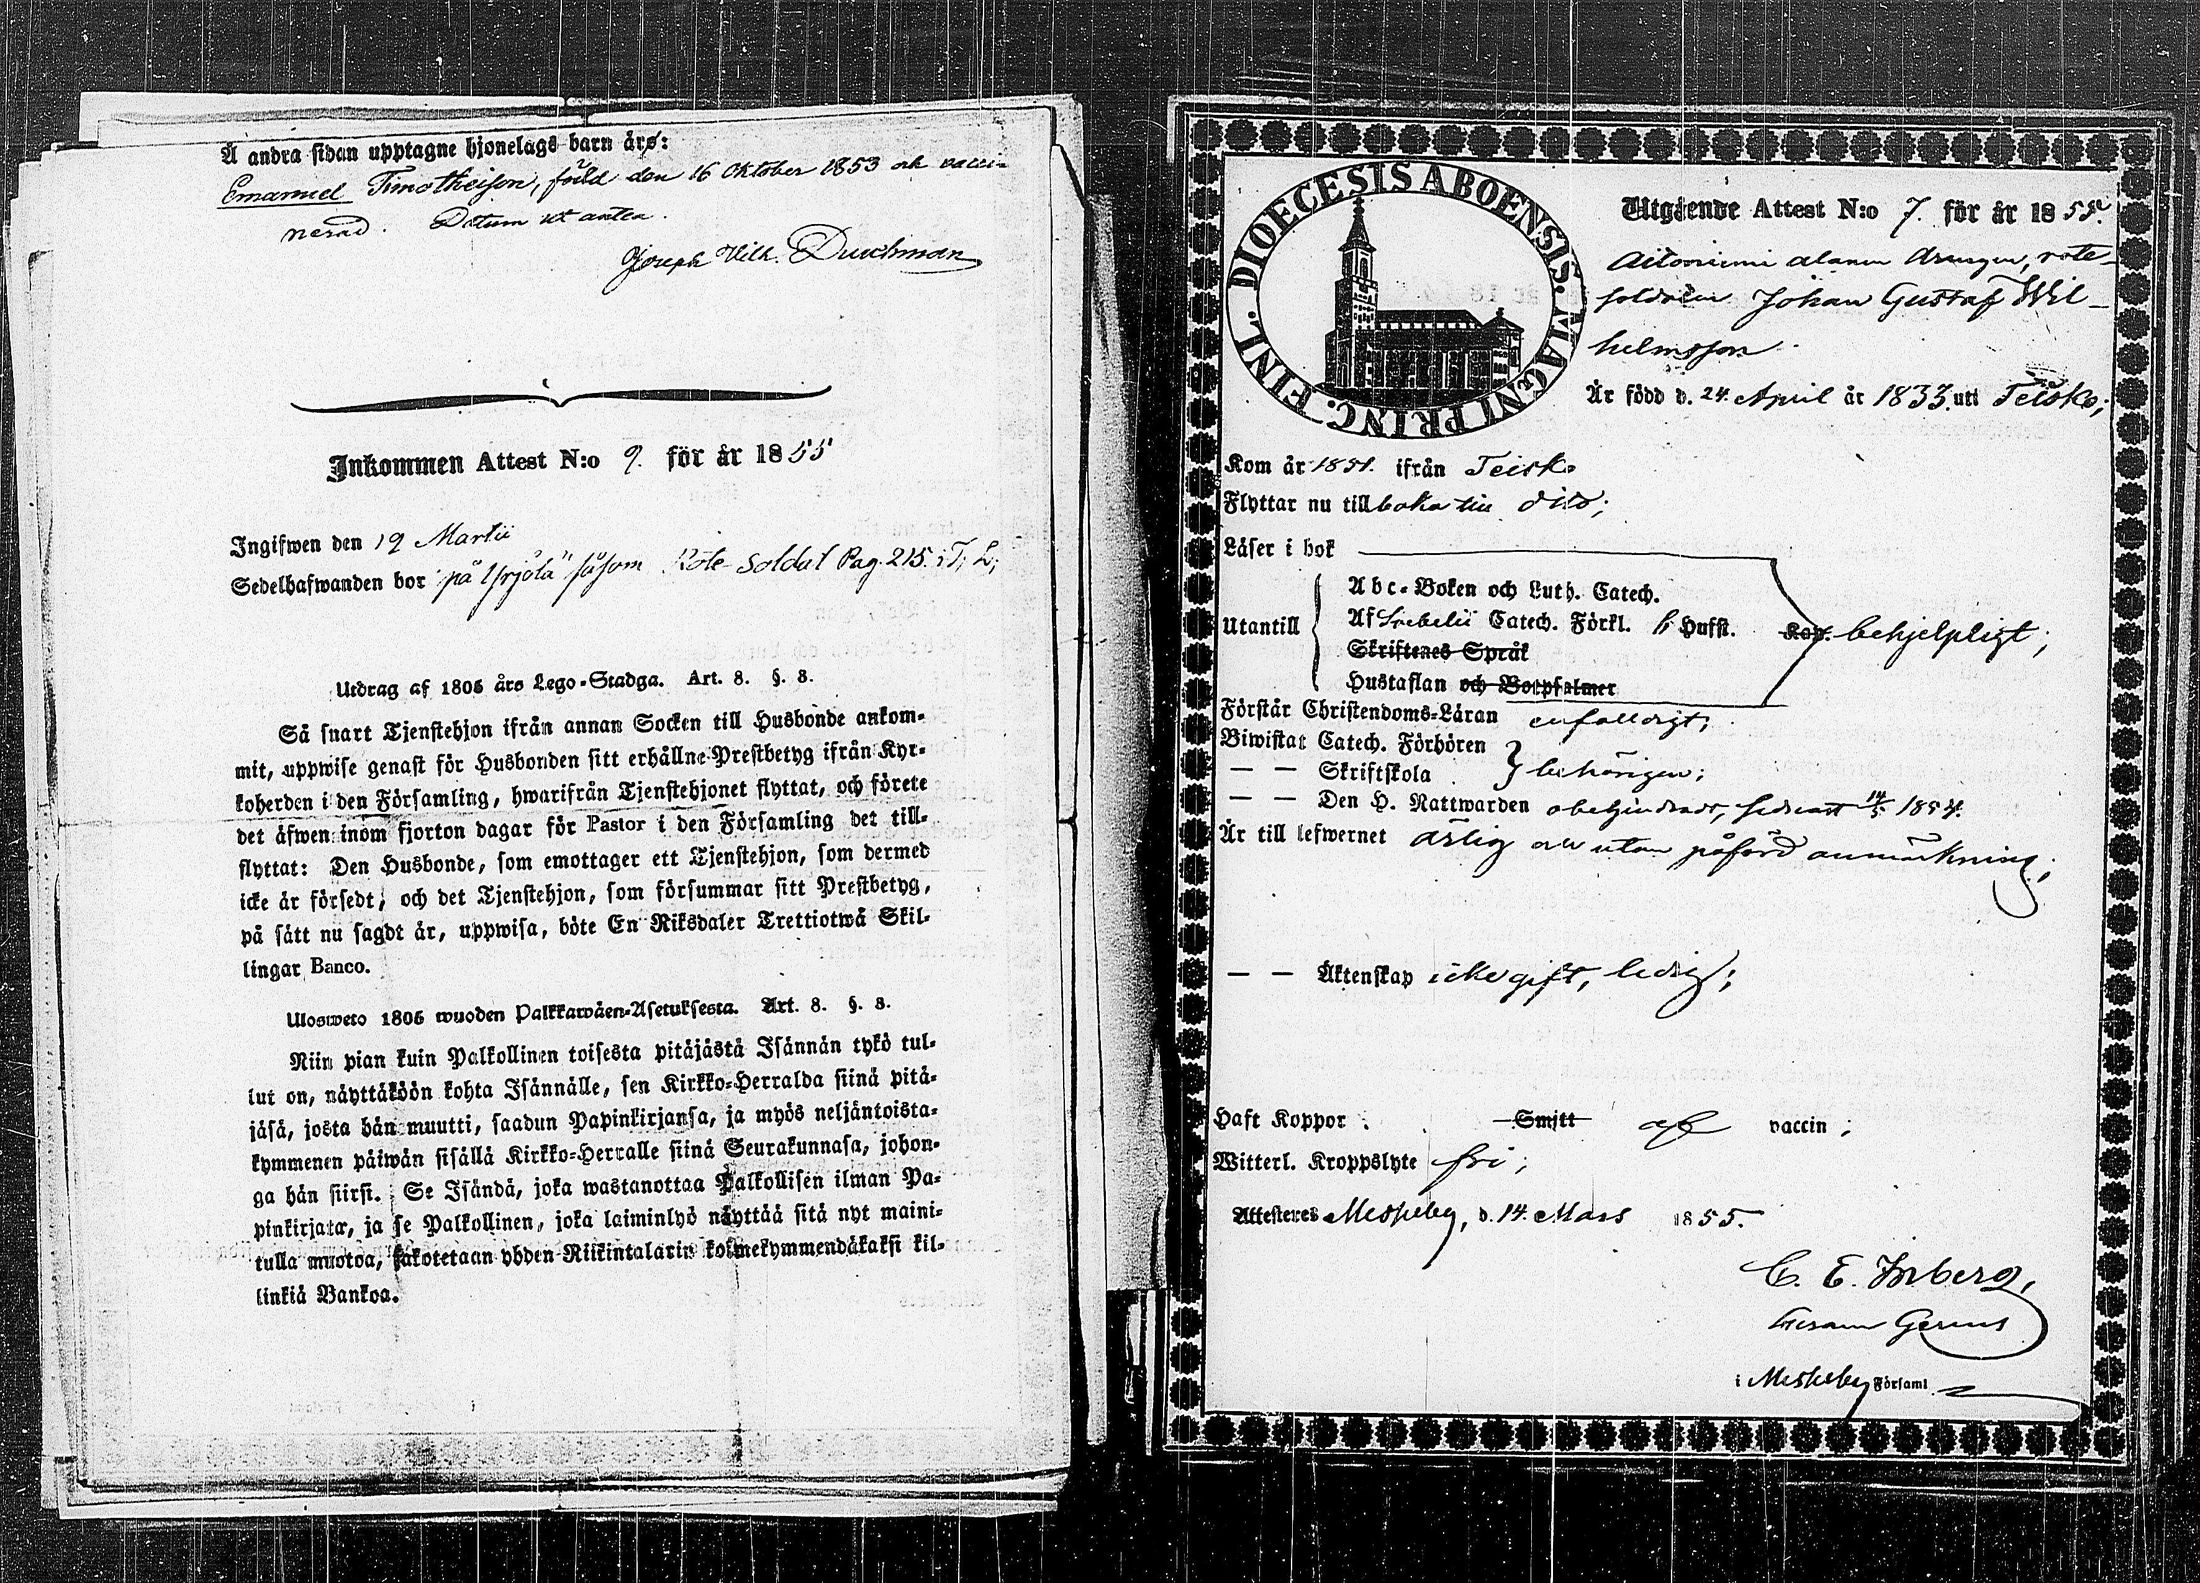 Å andra sidan upptagne hjonelags barn äro:
Emanuel Timotheison, född den 16 Oktober 1853 och vacci-
nerad. Datum ut antea.
Joseph Vilh. Durchman
Inkommen Attest N:o 9. för år 1855
Ingifwen den 19 Martii
Sedelhafwanden bor på Yrjölä såsom Rote-Soldat Pag. 215. T. L;
Utdrag af 1805 års Lego-Stadga. Art. 8. §. 8.
Så snart Tjenstehjon ifrån annan Socken till Husbonde ankom-
mit, uppwise genast för Husbonden sitt erhållne Prestbetyg ifrån Kyr-
koherden i den Församling, hwarifrån Tjenstehjonet flyttat, och förete
det äfwen inom fjorton dagar för Pastor i den Församling det till-
flyttat: Den Husbonde, som emottager ett Tjenstehjon, som dermed
icke är försedt, och det Tjenstehjon, som försummar sitt Prestbetyg,
på sätt nu sagdt är, uppwisa, böte En Riksdaler Trettiotwå Skil-
lingar Banco.
Ulosweto 1805 wuoden Palkkawäen-Asetuksesta. Art. 8. §. 8.
Niin pian kuin Palkollinen toisesta pitäjästä Isännän tykö tul-
lut on, näyttäköön kohta Isännälle, sen Kirkko-Herralda siinä pitä-
jäsä, josta hän muutti, saadun Papinkirjansa, ja myös neljäntoista-
kymmenen päiwän sisällä Kirkko-Herralle siinä Seurakunnasa, johon-
ga hän siirsi. Se Isändä, joka wastanottaa Palkollisen ilman Pa-
pinkirjata, ja se Palkollinen, joka laiminlyö näyttää sitä nyt maini-
tulla muotoa, sakotetaan yhden Riikintalarin kolmekymmendäkaksi kil-
linkiä Bankoa.
DIOECESIS ABOENSIS. MAGNI PRINC. FINL.
Utgående Attest N:o 7. för år 1855.
Aitoniemi alanen drängen, rote-
soldaten Johan Gustaf Wil-
helmsson
Är född d. 24. April år 1833. uti Teisko;
Kom år 1851. ifrån Teisko
Flyttar nu till baka till dito;
Läser i bok
Abc-Boken och Luth. Catech.
Utantill Af Svebelii Catech. Förkl. Husst. Kap. behjelpligt;
Skriftenes Språk
Hustaflan och Botpsalmer
Förstår Christendoms-Läran enfalldigt;
Biwistat Catech. Förhören
— — Skriftskola behörigen;
— — Den H. Nattwarden obehindradt, sednast 14/5 1854.
Är till lefwernet ärlig och utan påförd anmärkning;
— — Äktenskap icke gift, ledig;
Haft Koppor Smitt af vaccin;
Witterl. Kroppslyte fri;
Attesteres Messuby, d. 14. Mars 1855.
C. E. Inberg,
i Messuby Församl.